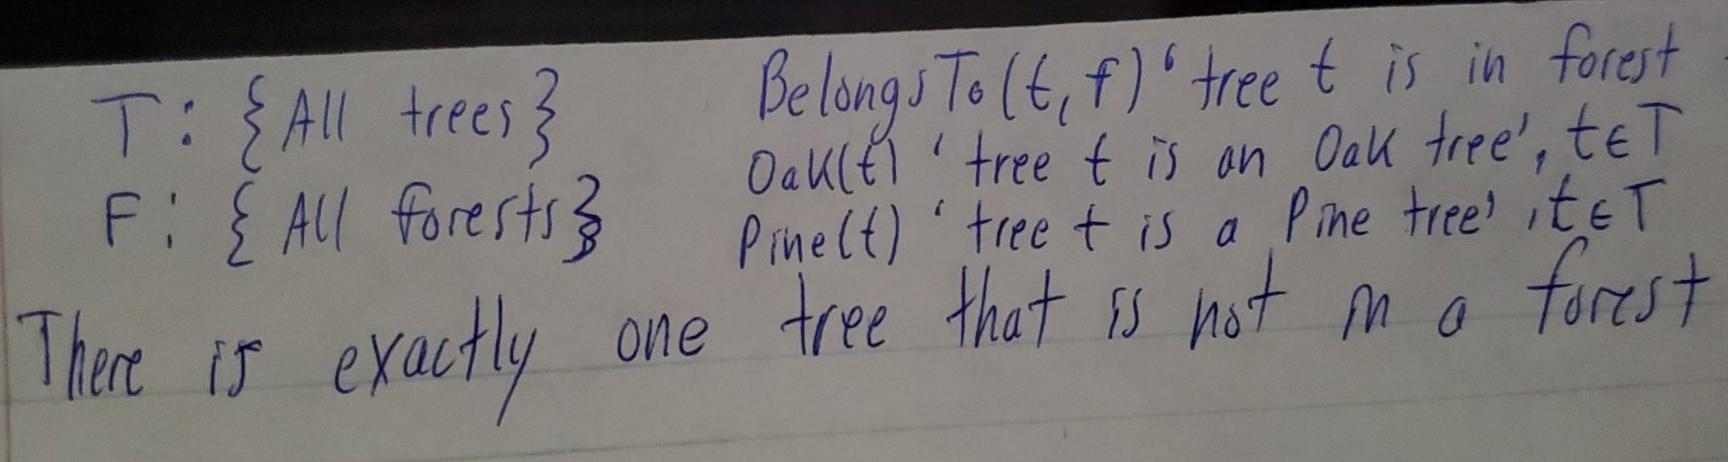 T: {All trees} BelongsTo(t, f) ' tree t is in forest
Oak(t) ' tree t is an Oak tree', t∈T
F: {All forests} Pine(t) ' tree t is a Pine tree' , t∈T
There is exactly one tree that is not in a forest